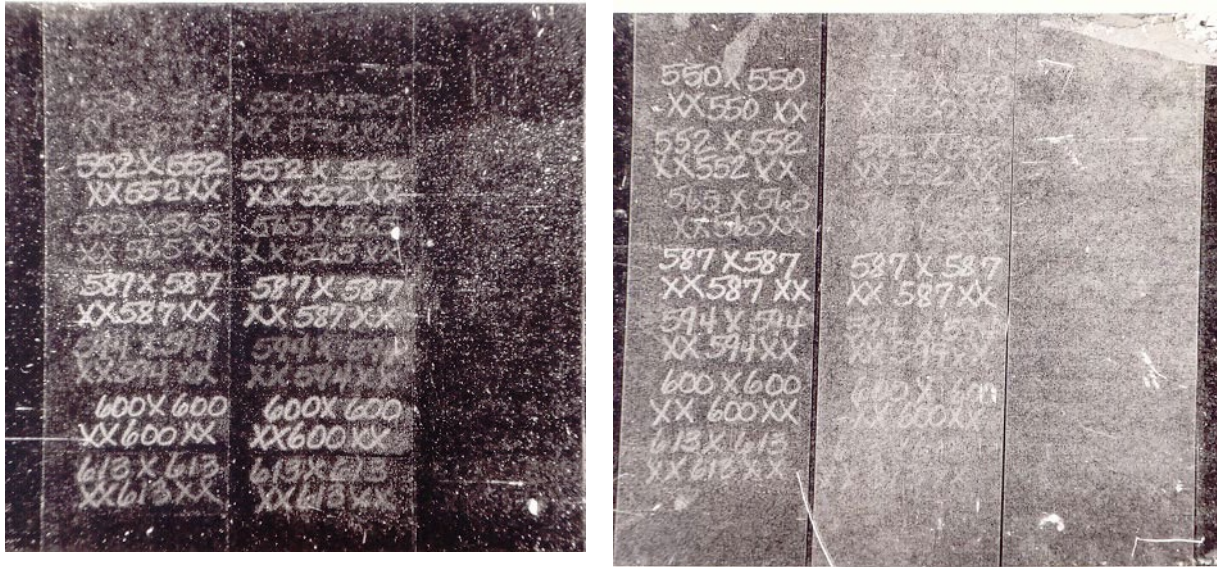 550X550
XX550XX
552X552
XX552XX
565X565
XX565XX
587X587
XX587XX
594X594
XX594XX
600X600
XX600XX
613X613
XX613XX
550X550
XX 550XX
552X552
XX 552XX
565X565
XX565XX
587X587
XX 587XX
594X594
XX594XX
600X600
XX600XX
613X613
XX613XX
550X550
XX550 XX
552X552
XX552XX
565X565
XX565XX
587X587
XX587 XX
594X594
XX594XX
600X600
XX 600XX
613X613
XX613XX
550X550
552X552
XX552 XX
587X587
XX 587XX
594X594
XX 594XX
600X600
XX600XX